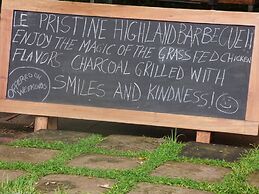 LE PRISTINE HIGHLAND BARBECUE!!
ENJOY THE MAGIC OF THE GRASS FED CHICKEN
FLAVORS CHARCOAL GRILLED WITH
SMILES AND KINDNESS!
OFFERED ON
WEEKENDS